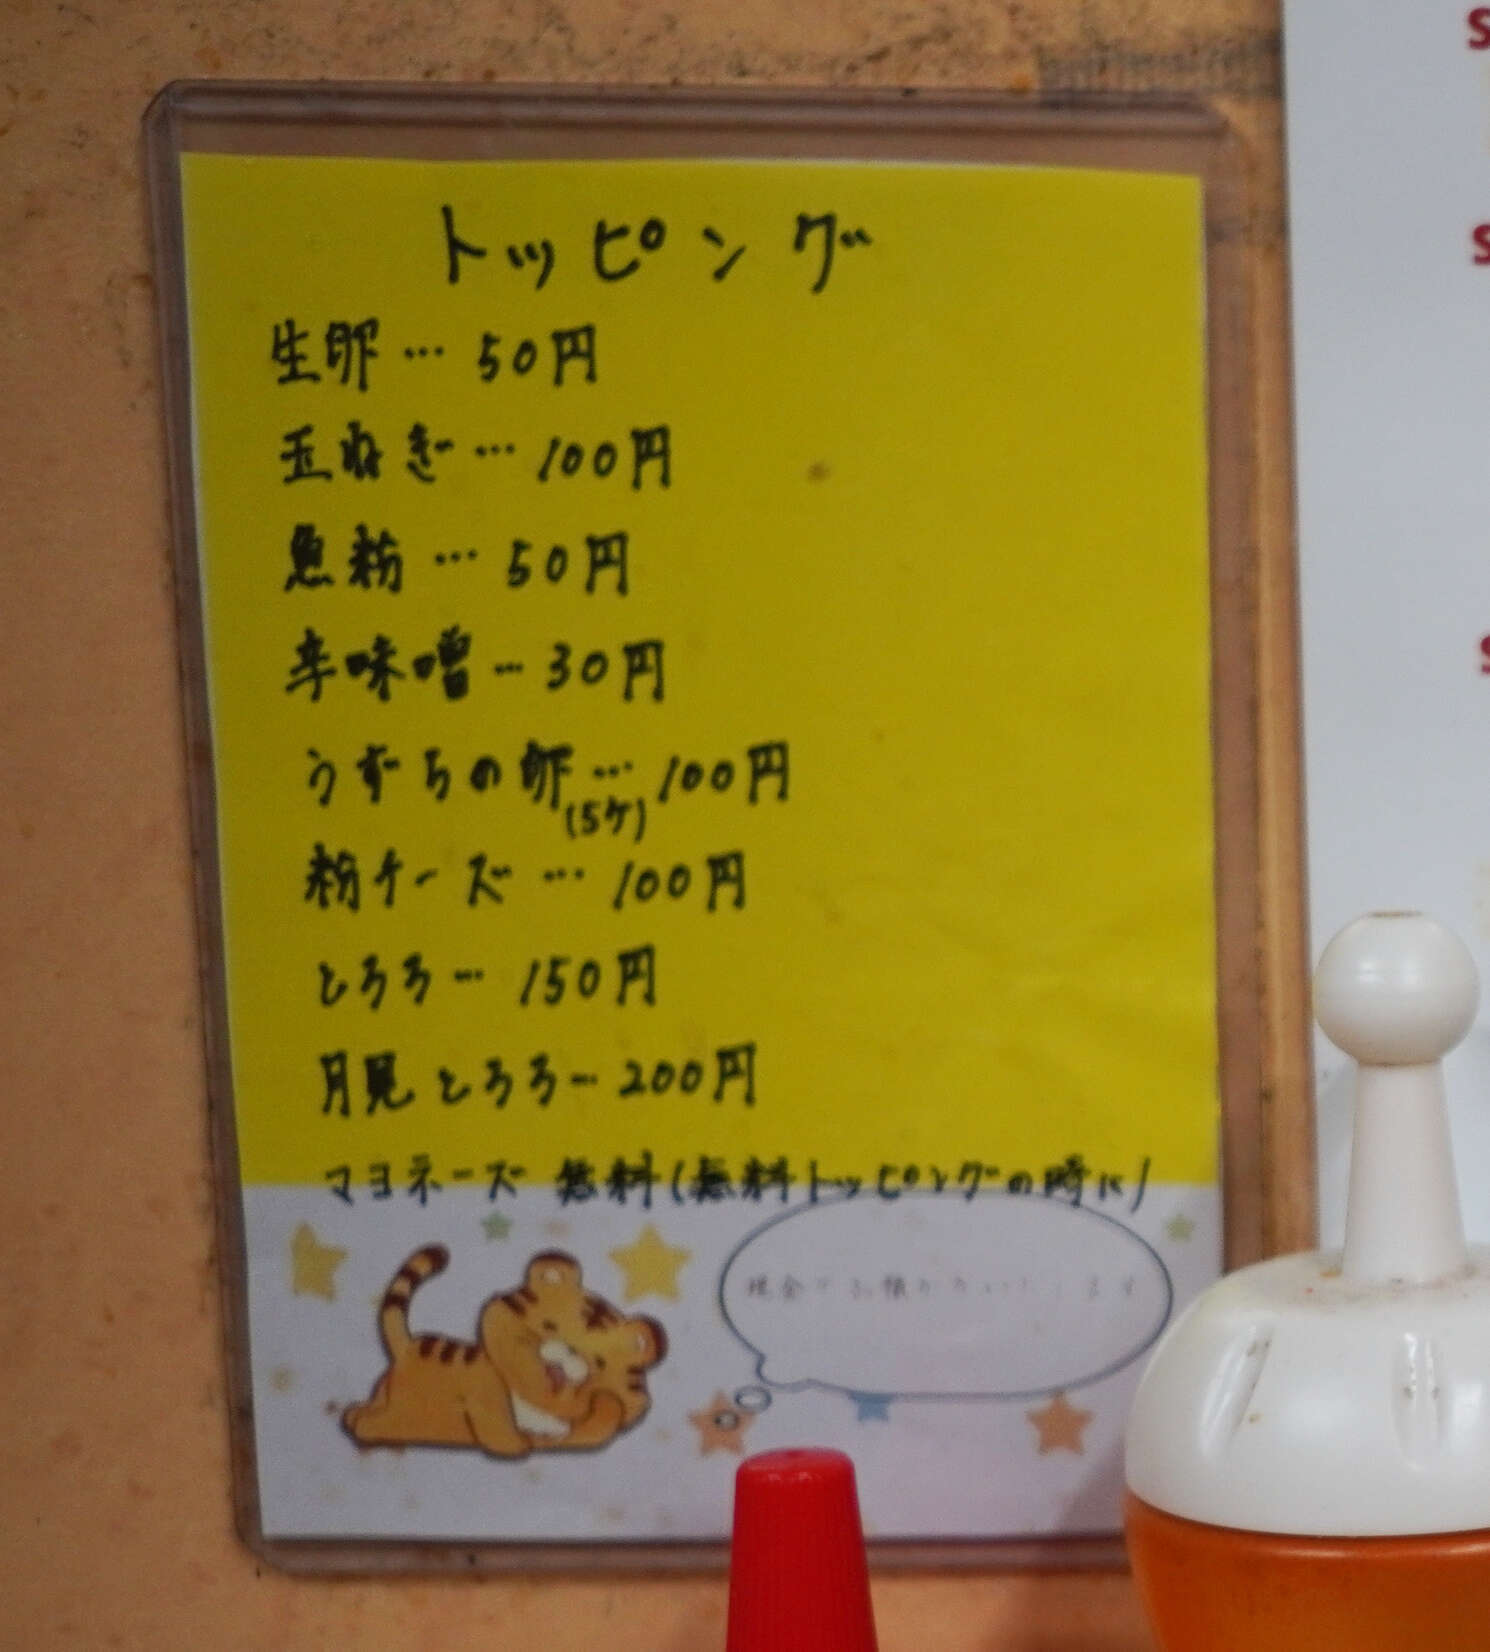 トッピング
生卵…50円
玉ねぎ…100円
魚粉…50円
辛味噌…30円
うずらの卵…100円
(5ケ)
粉チーズ…100円
とろろ…150円
月見とろろ…200円
マヨネーズ 無料(無料トッピングの時に)
現金でお願いいたします
S
S
S